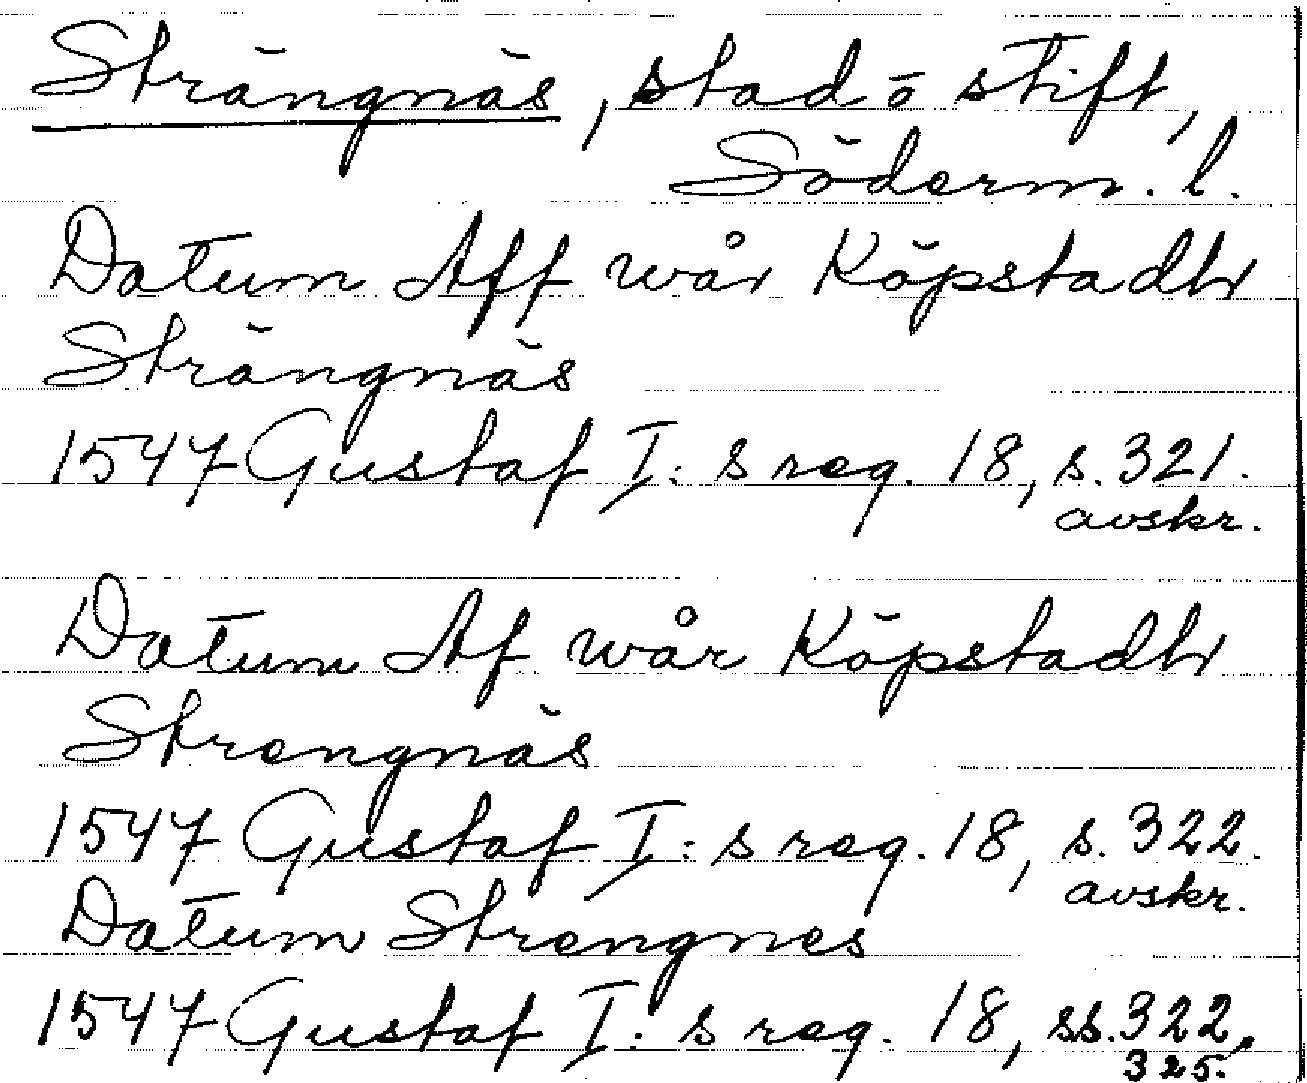 Strängnäs, stad o stift,
Söderm. l.
Datum Aff wår Köpstadh
Strängnäs
1547 Gustaf I:s reg. 18, s. 321.
avskr.
Datum Af wår Köpstadh
Strengnäs
1547 Gustaf I:s reg. 18, s. 322.
avskr.
Datum Strengnes
1547 Gustaf I:s reg. 18, ss. 322,
325.